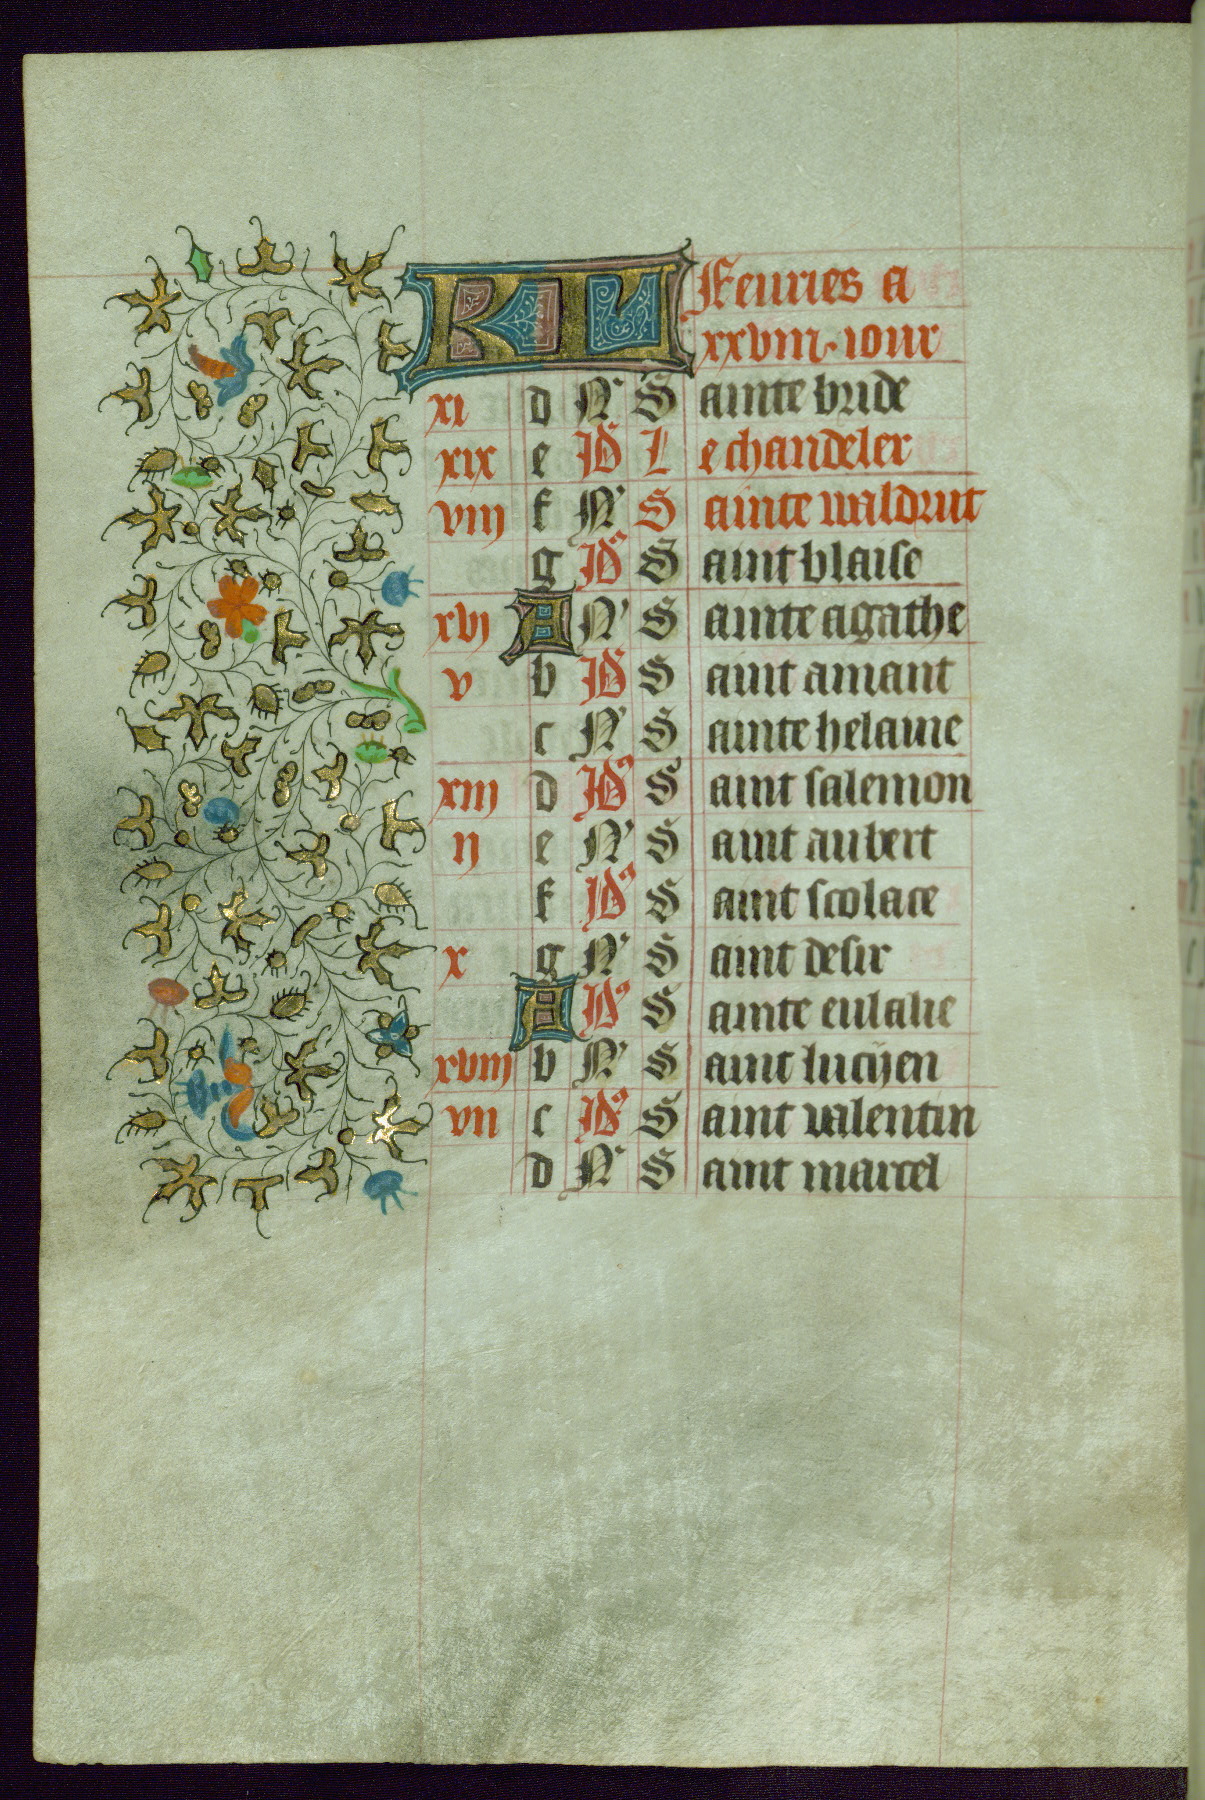 KL Feuries a
xxviii. iour
xi d N' S ainte bride
xix e Id L e chandeler
viii f N' S ainte waldrut
g Id' S aint blaise
xvi A N' S ainte agathe
v b Id S aint amant
c N' S ainte helaine
xiii d Id' S aint salemon
ii e N' S aint aubert
f Id' S aint scolace
x g N' S aint desir
A Id' S ainte eulalie
xviii b N' S aint lucijen
vii c Id' S aint valentin
d N' S aint marcel